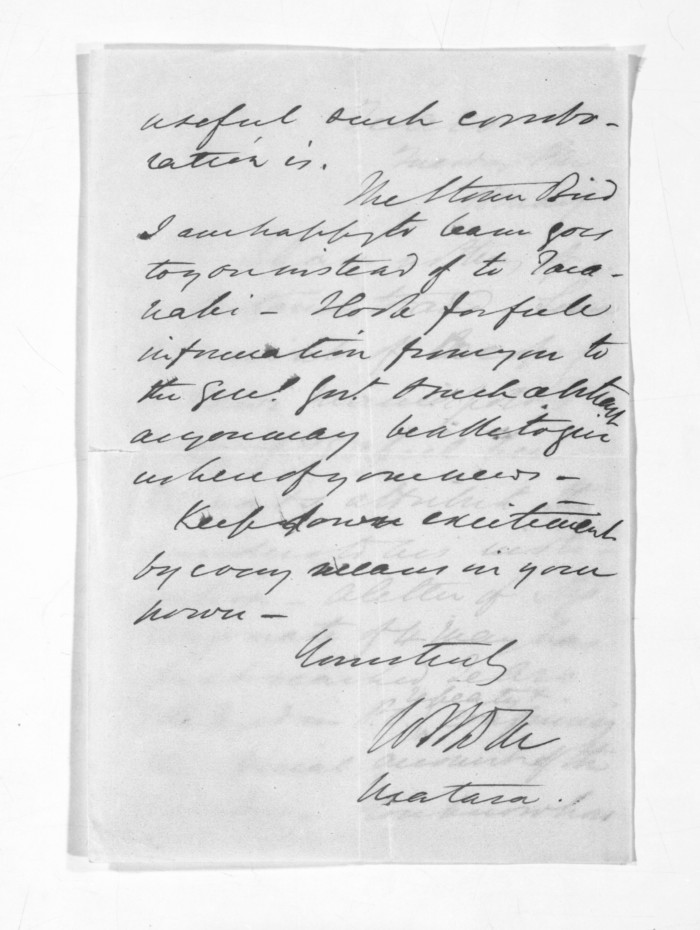 useful such corrobo-
ration is.
The Storm Bird
I am happy to learn goes
to you instead of to Tara-
naki - I look for full
information from you to
the Genl. Govt. & such abstract
as you may be able to give
when of your news -
Keep down excitement
by every means in your
power -
Yours truly

Waitara.